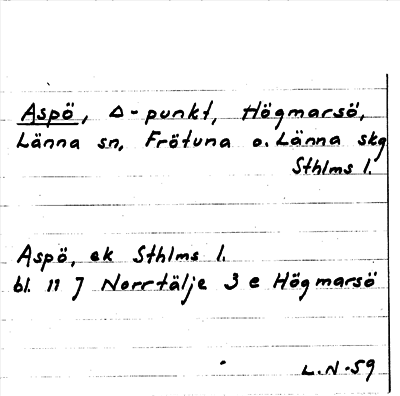 Aspö, Δ-punkt, Högmarsö,
Länna sn, Frötuna o. Länna skg
Sthlms l.
Aspö, ek Sthlms l.
bl. 11 J Norrtälje 3 e Högmarsö
L.N-59